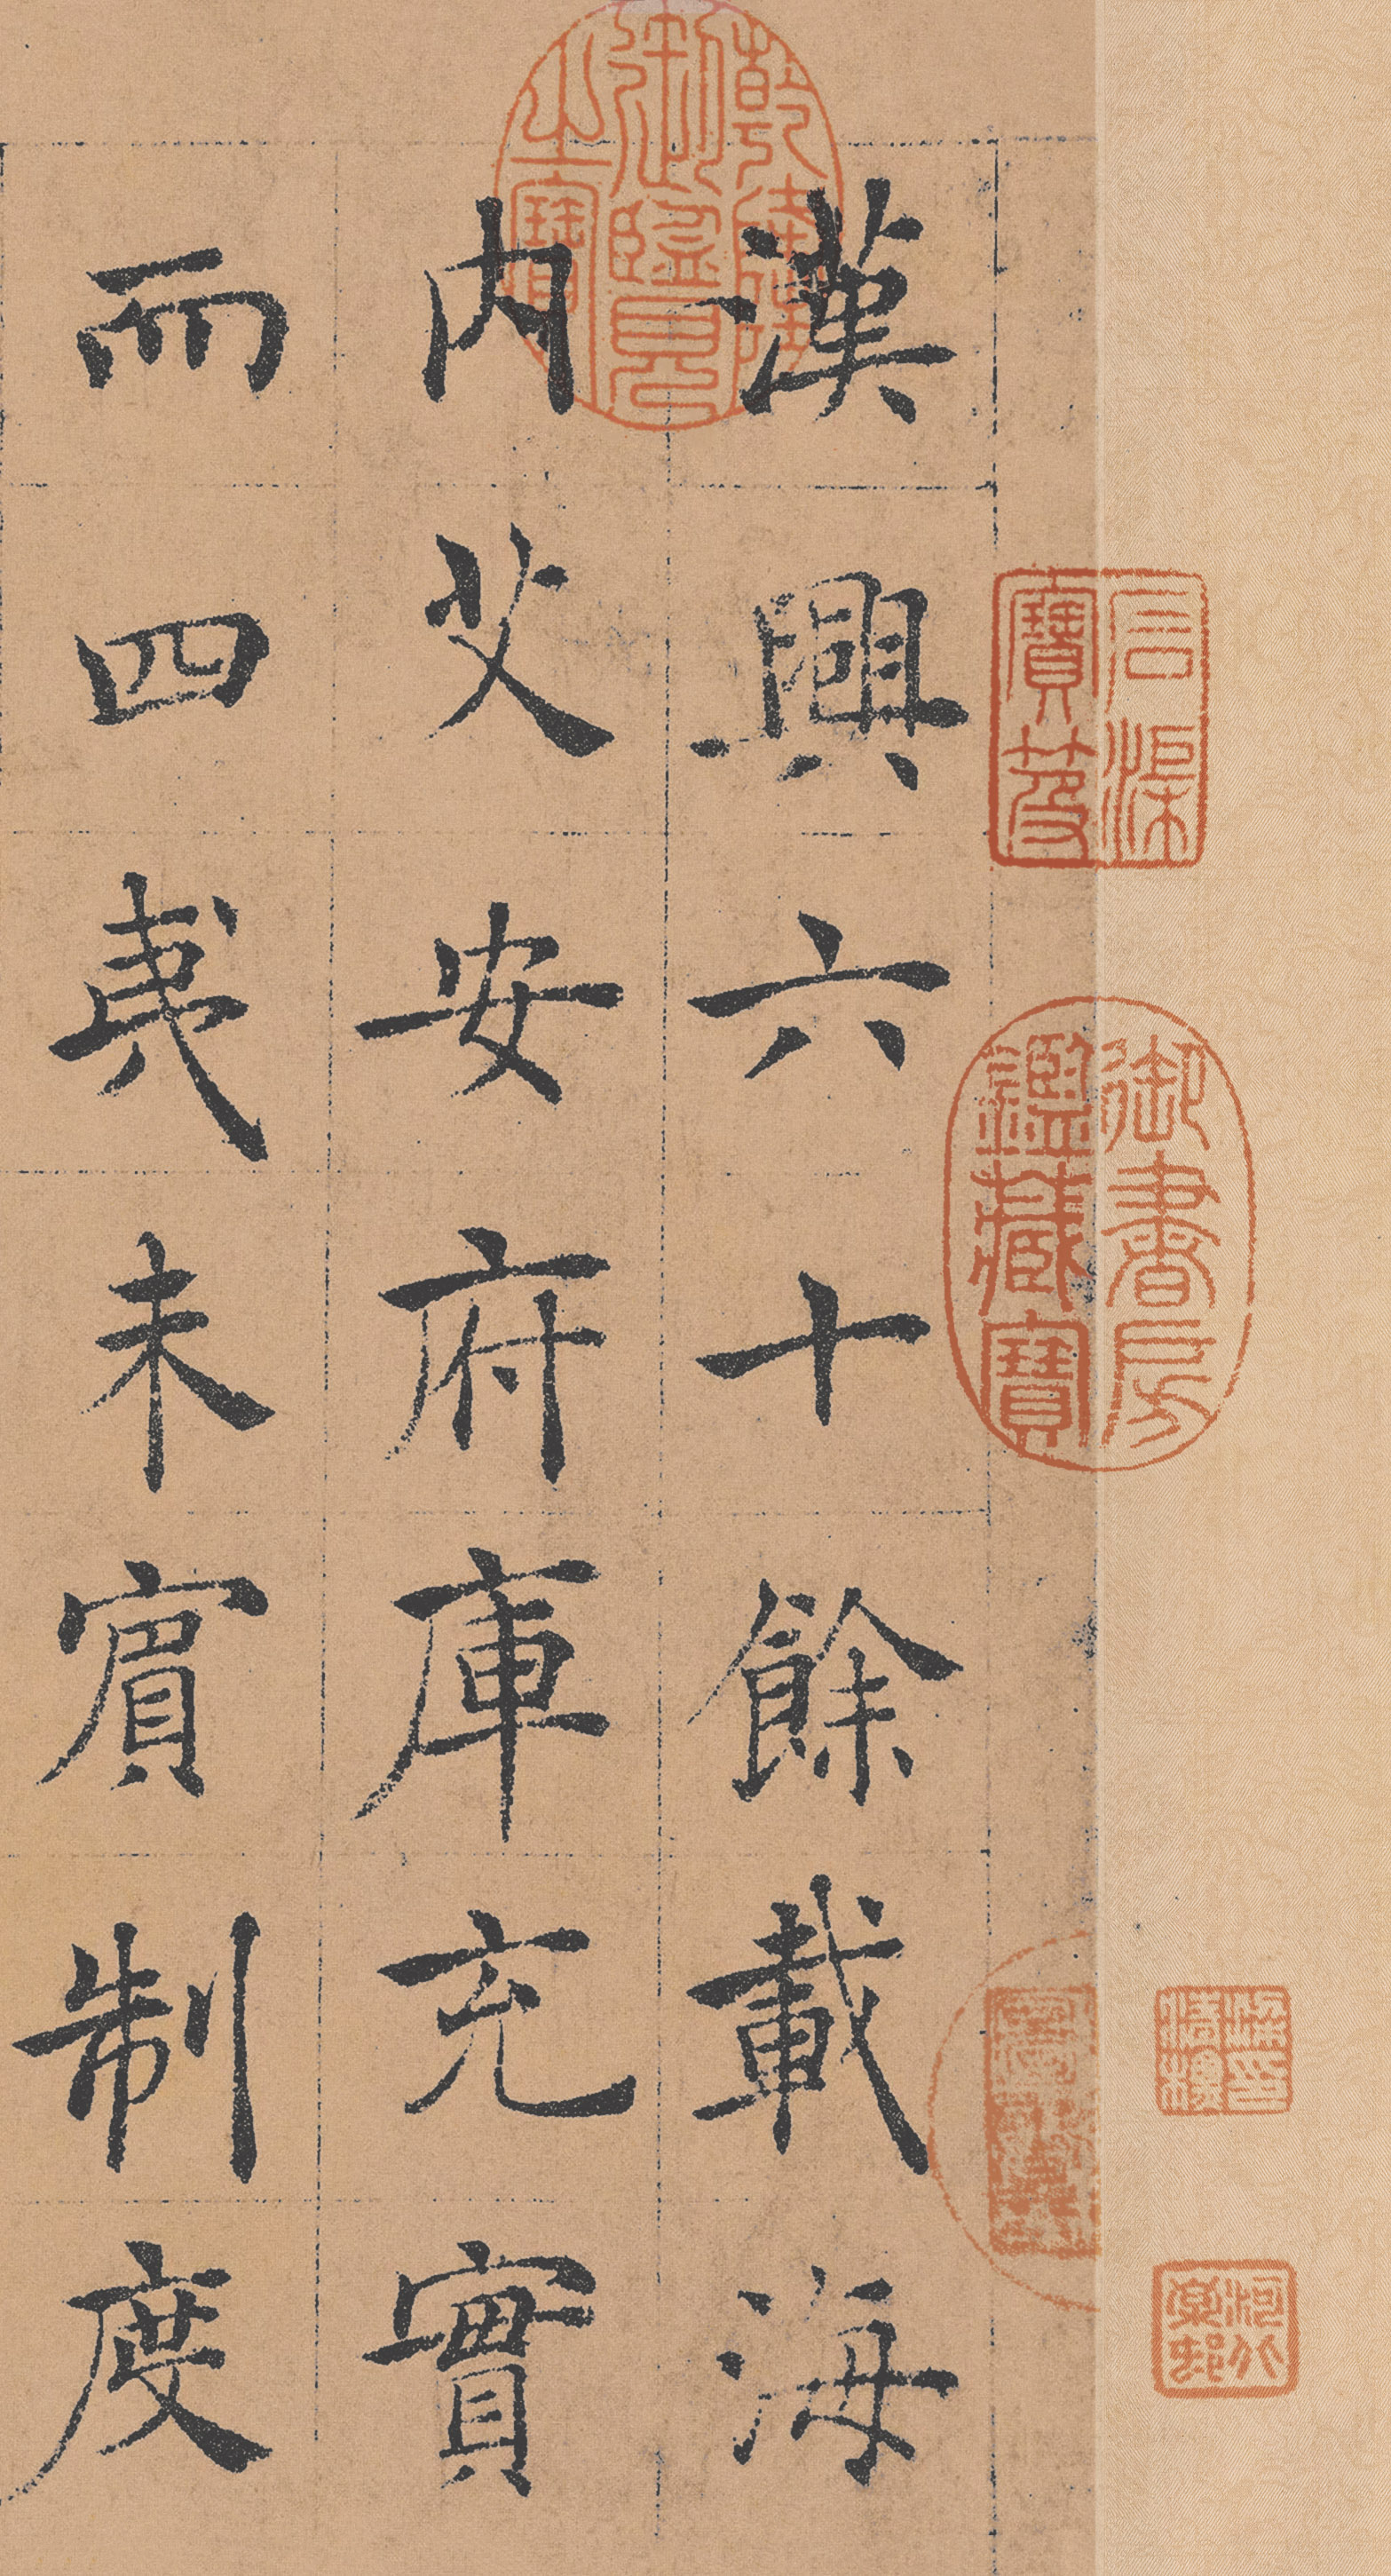 石渠寶笈
御書房鑑藏寶
河北棠邨
乾隆御覽之寶
漢興六十餘載海
內艾安府庫充實
而四夷未賓制度